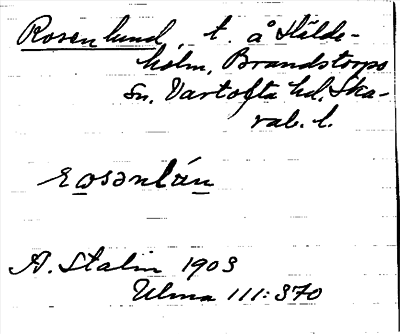 Rosenlund, t. å Hilde-
holm, Brandstorps
sn, Vartofta hd, Ska-
rab. l.
rosənlún
A. Stalin 1903
Ulma 111:370